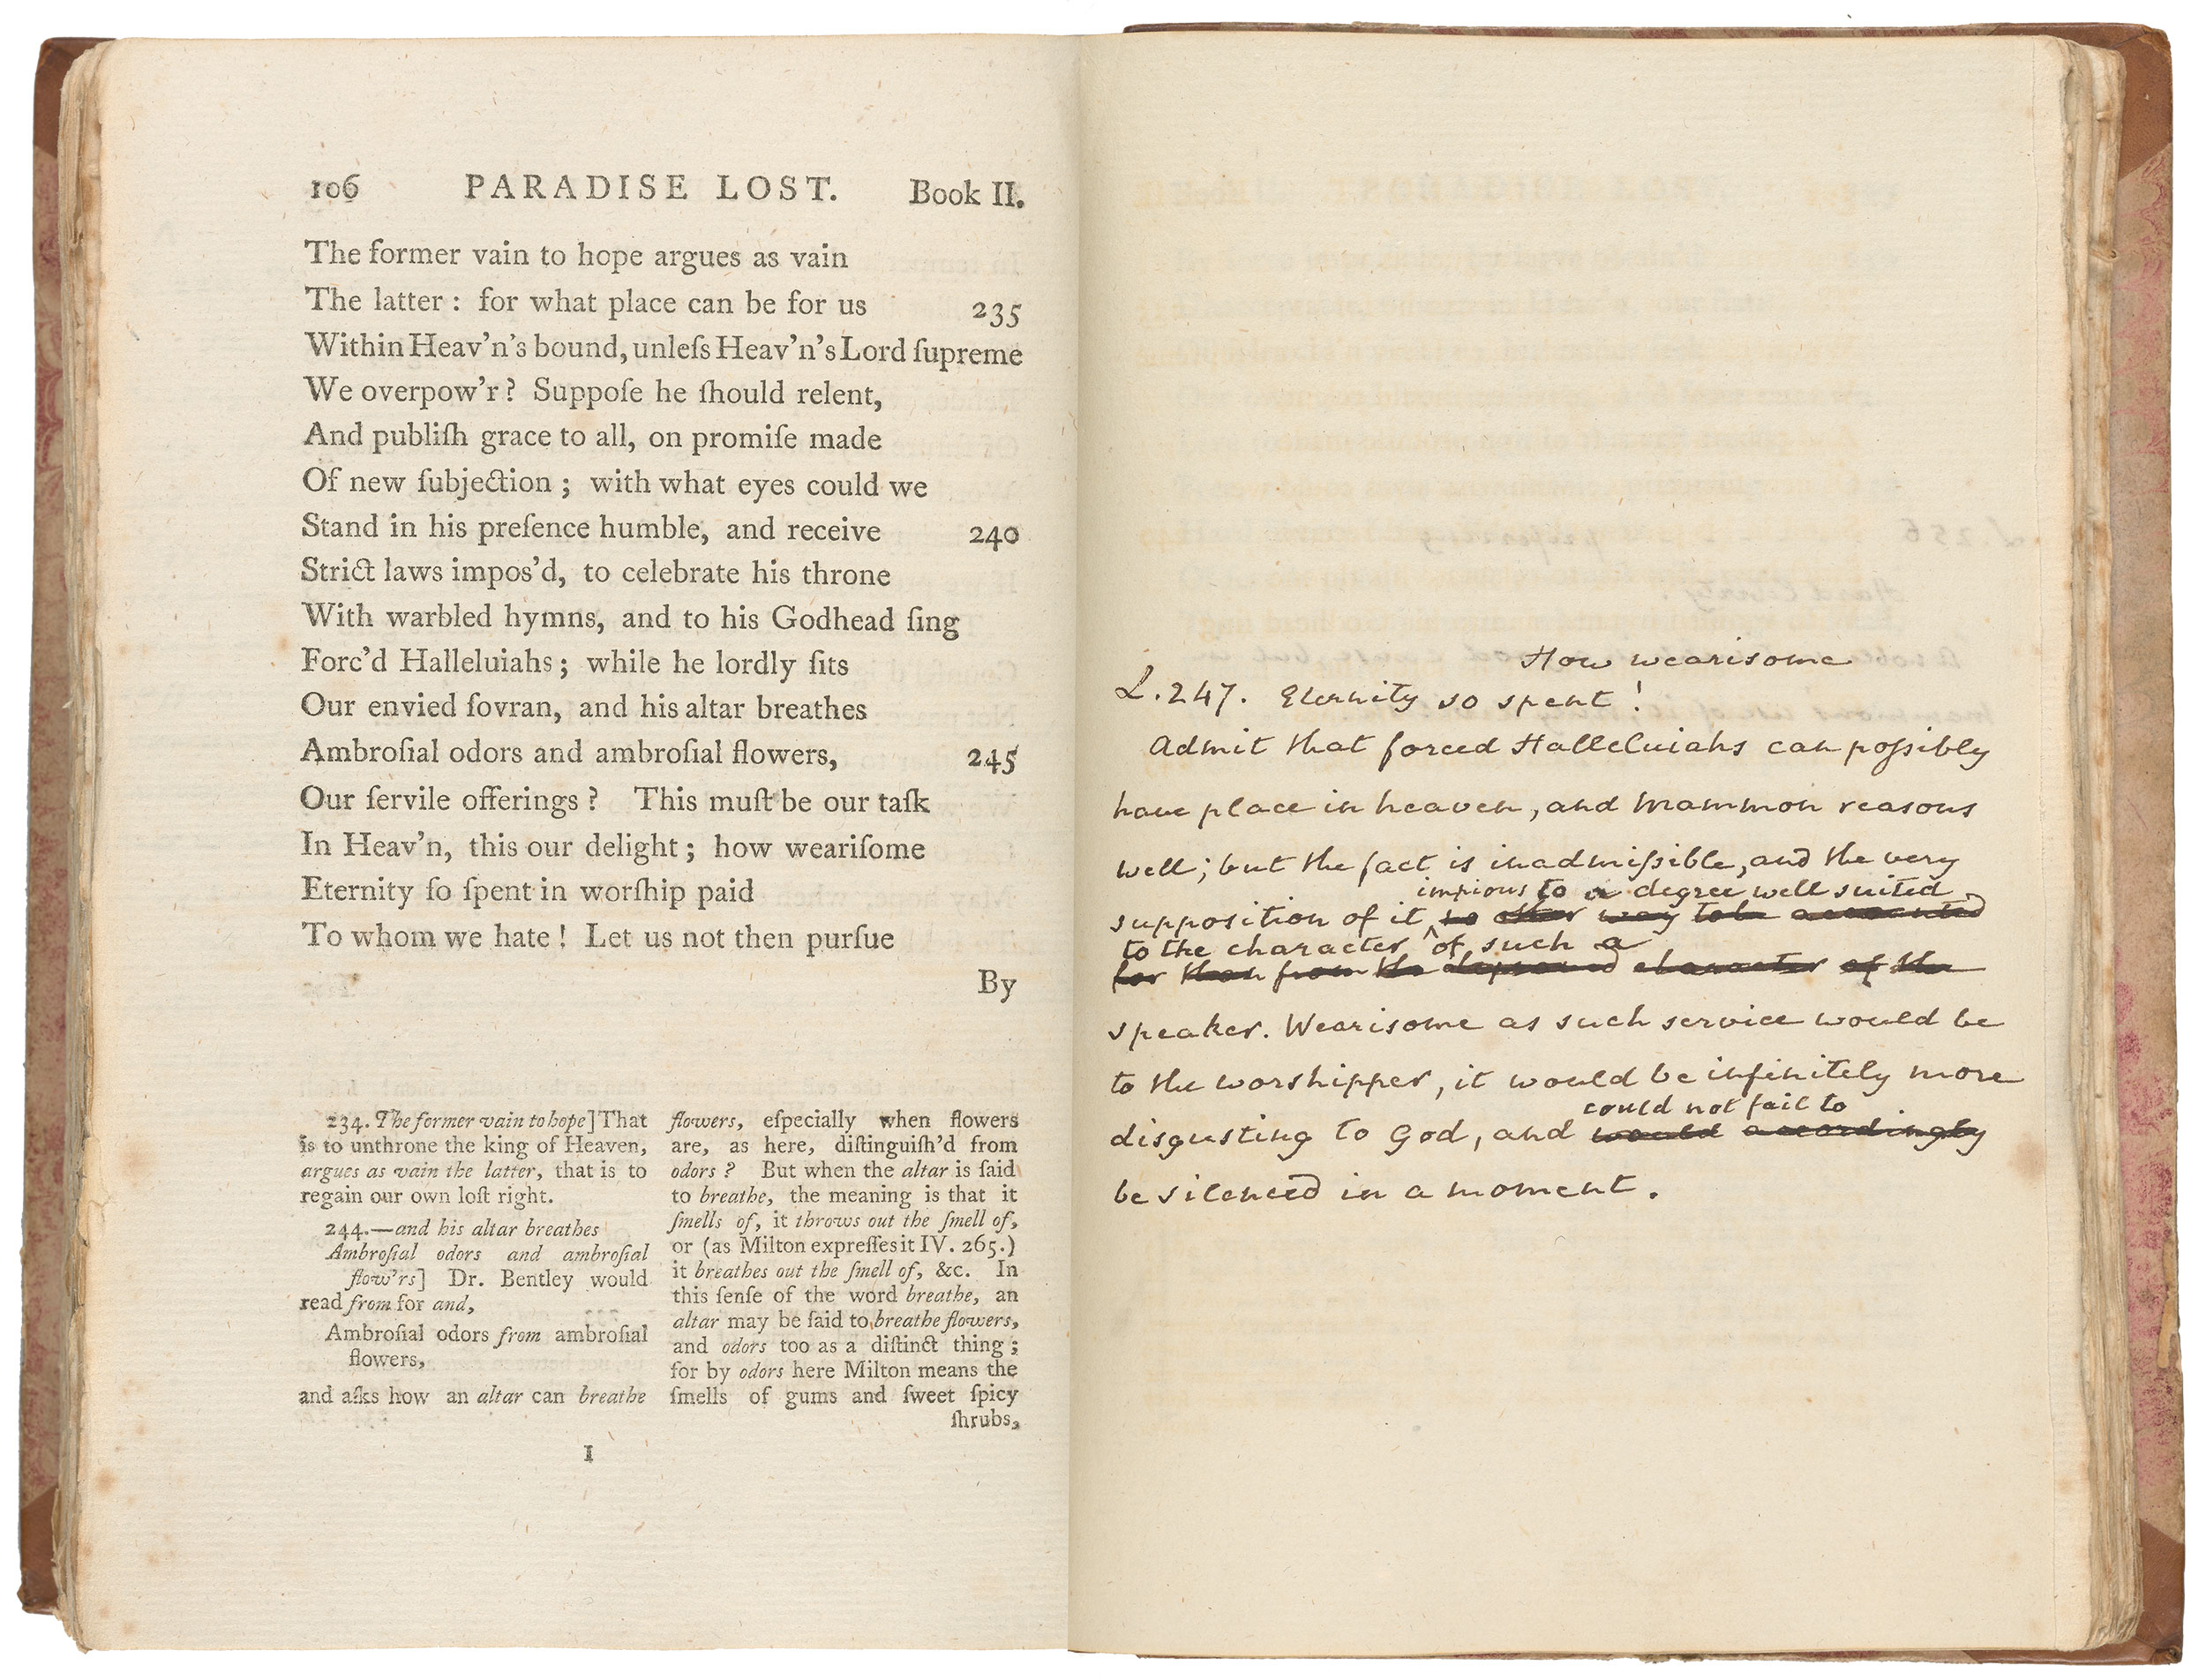 106 PARADISE LOST. Book II.
The former vain to hope argues as vain
The latter : for what place can be for us 235
Within Heav'n's bound, unleſs Heav'n's Lord ſupreme
We overpow'r ? Suppoſe he ſhould relent,
And publiſh grace to all, on promiſe made
Of new ſubjection ; with what eyes could we
Stand in his preſence humble, and receive 240
Strict laws impos'd, to celebrate his throne
With warbled hymns, and to his Godhead ſing
Forc'd Halleluiahs ; while he lordly ſits
Our envied ſovran, and his altar breathes
Ambroſial odors and ambroſial flowers, 245
Our ſervile offerings ? This muſt be our taſk
In Heav'n, this our delight ; how weariſome
Eternity ſo ſpent in worſhip paid
To whom we hate ! Let us not then purſue
By
234. The former vain to hope] That
is to unthrone the king of Heaven,
argues as vain the latter, that is to
regain our own loſt right.
244.—and his altar breathes
Ambroſial odors and ambroſial
flow'rs] Dr. Bentley would
read from for and,
Ambroſial odors from ambroſial
flowers,
and aſks how an altar can breathe
flowers, eſpecially when flowers
are, as here, diſtinguiſh'd from
odors ? But when the altar is ſaid
to breathe, the meaning is that it
ſmells of, it throws out the ſmell of,
or (as Milton expreſſes it IV. 265.)
it breathes out the ſmell of, &c. In
this ſenſe of the word breathe, an
altar may be ſaid to breathe flowers,
and odors too as a diſtinct thing ;
for by odors here Milton means the
ſmells of gums and ſweet ſpicy
ſhrubs,
I
How wearisome
L. 247. Eternity so spent !
Admit that forced Halleluiahs can poſsibly
have place in heaven, and Mammon reasons
well; but the fact is inadmiſsible, and the very
impious to a degree well suited
supposition of it no other way to be accounted
to the character of such a
for than from the depraved character of the
speaker. Wearisome as such service would be
to the worshipper, it would be infinitely more
could not fail to
disgusting to God, and would accordingly
be silenced in a moment.